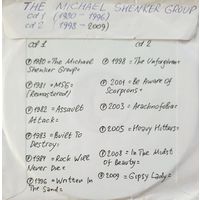 THE MICHAEL SHENKER GROUP
cd 1 (1980 - 1996)
cd 2 (1998 - 2009)
cd 1
℗ 1980 = The Michael
Shenker Group =
℗ 1981 = MSG =
(Remastered)
℗ 1982 = Assault
Attack =
℗ 1983 = Built To
Destroy =
℗ 1984 = Rock Will
Never Die =
℗ 1996 = Written In
The Sand =
cd 2
℗ 1998 = The Unforgiven =
℗ 2001 = Be Aware Of
Scorpions =
℗ 2003 = Arachnofobiac =
℗ 2005 = Heavy Hitters =
℗ 2008 = In The Midst
Of Beauty =
℗ 2009 = Gipsy Lady =